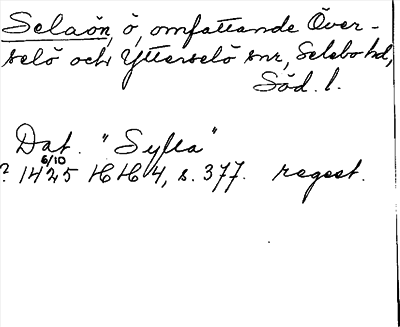 Selaön, ö, omfattande Över-
selö och Ytterselö snr, Selebo hd,
Söd. l.
Dat. "Sylla"
? 1425 6/10 HH 4, s. 377. regest.